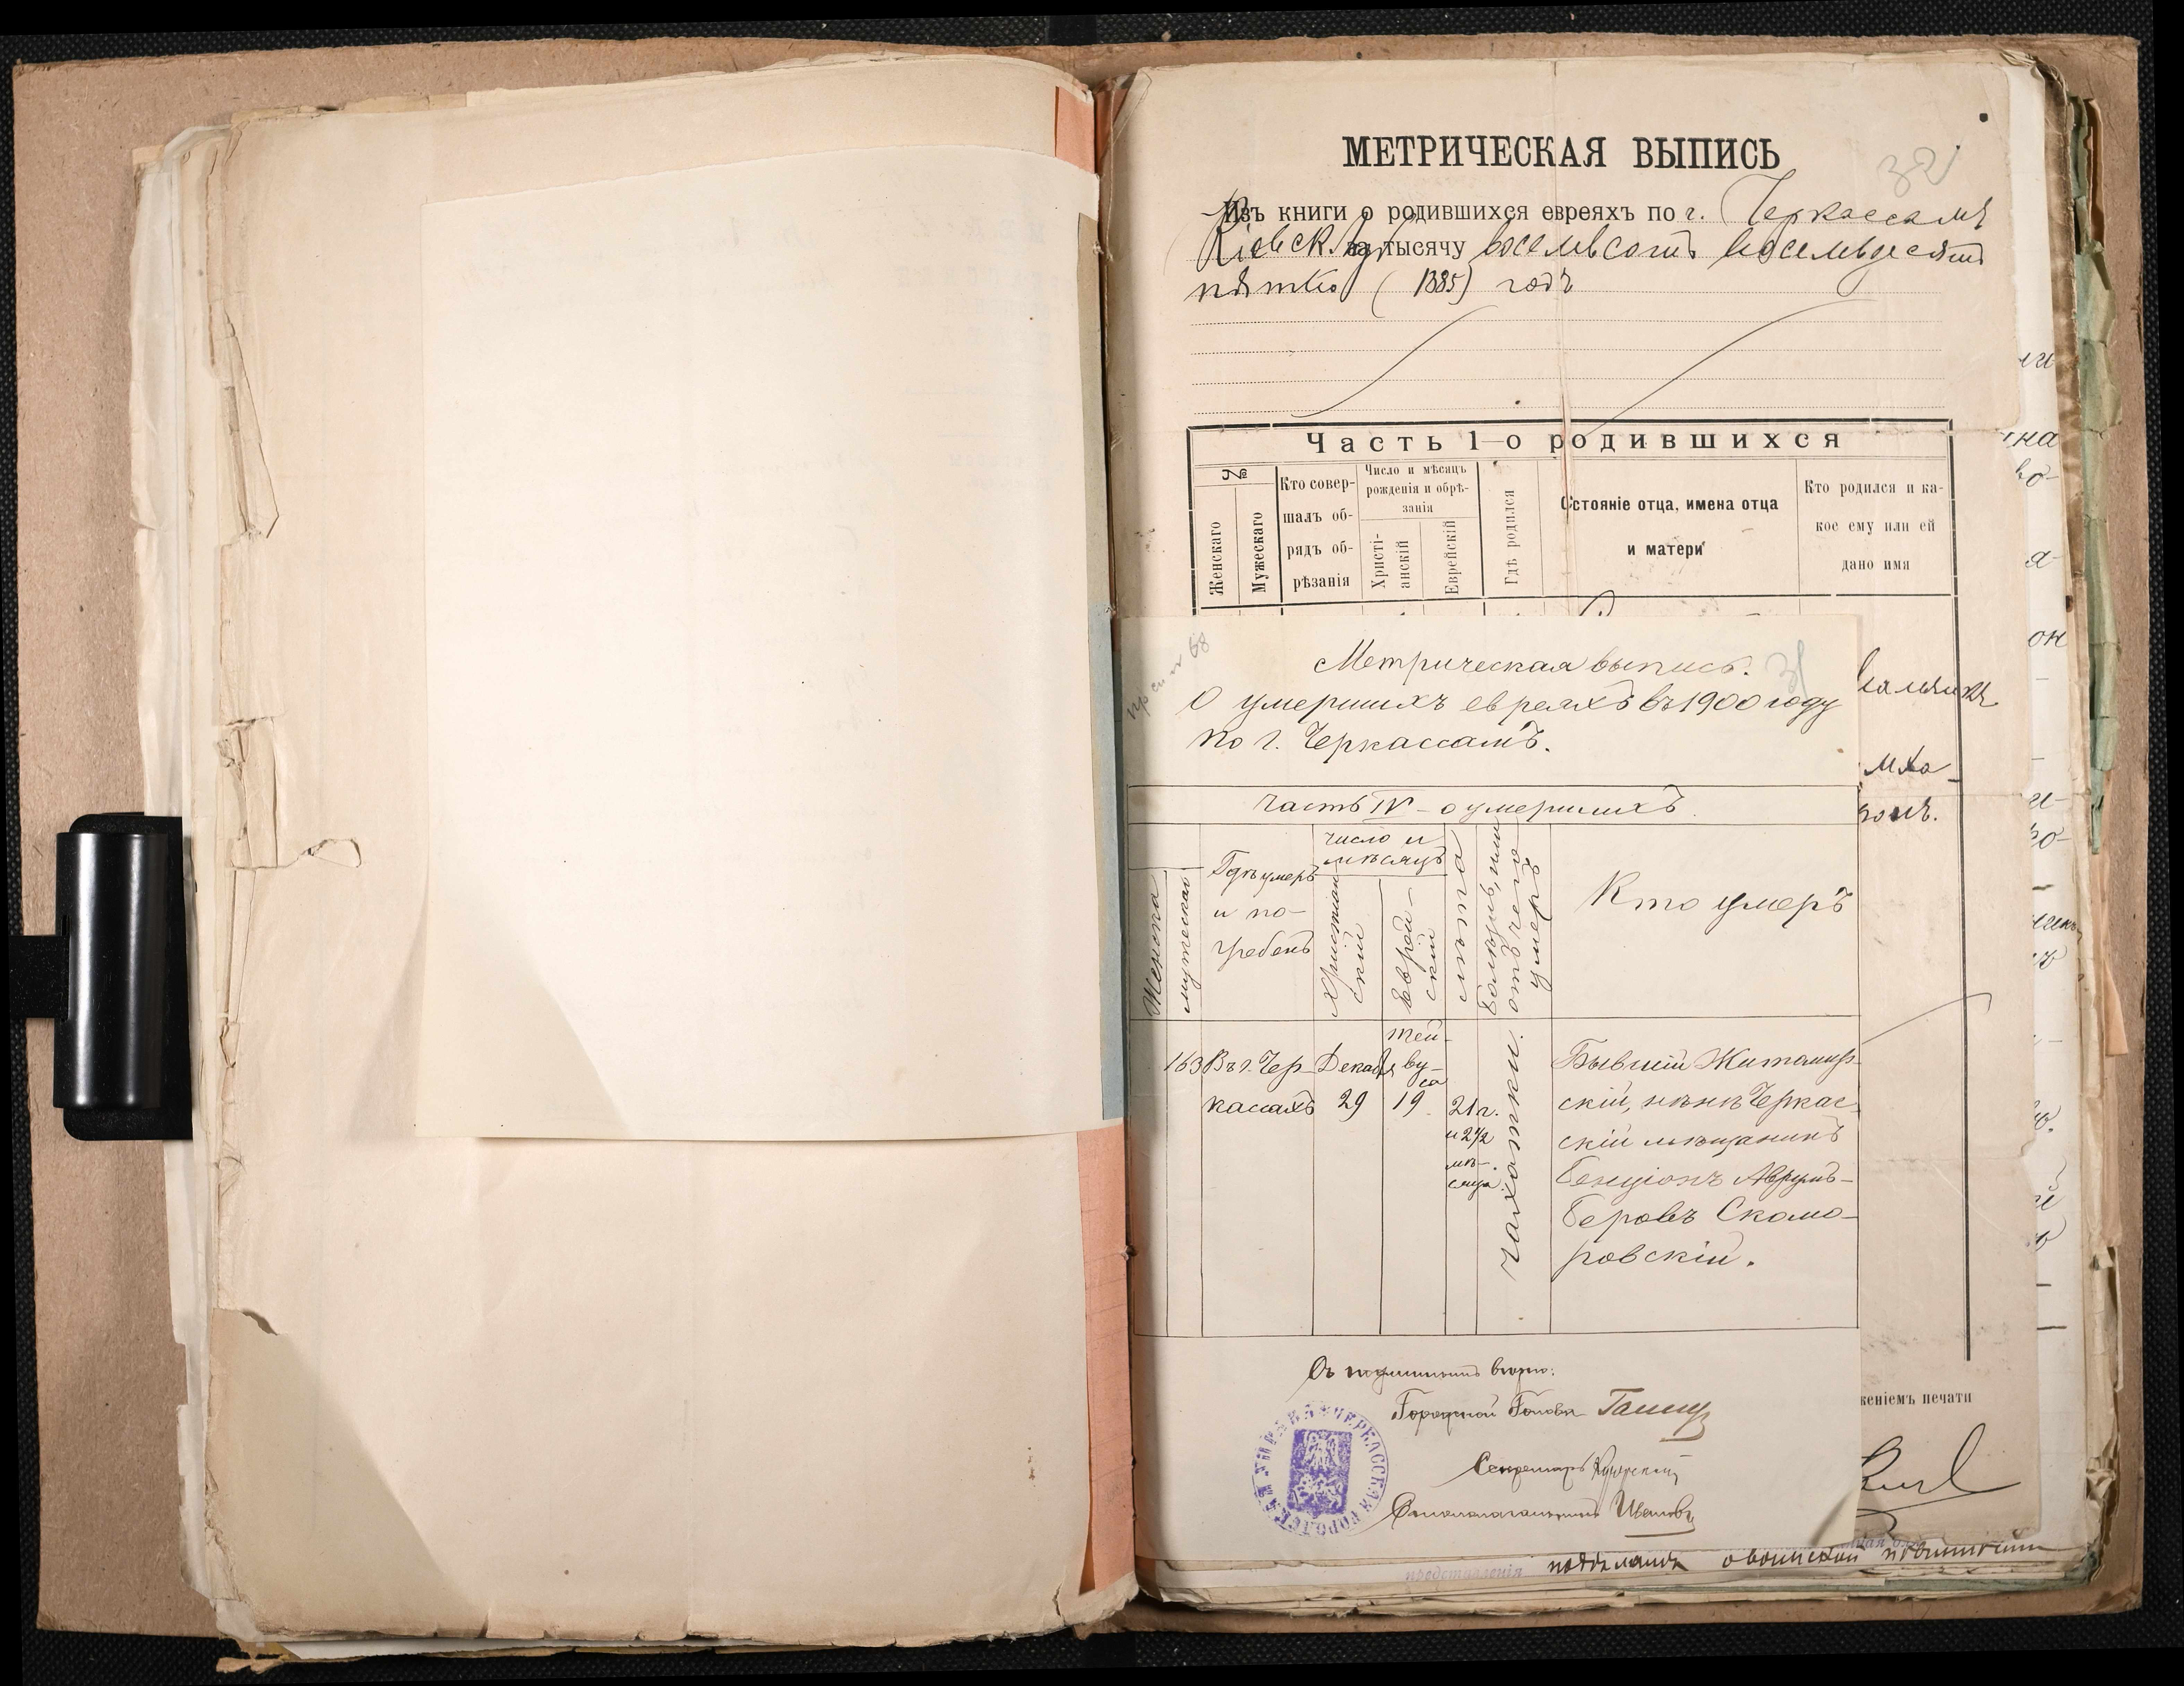 МЕТРИЧЕСКАЯ ВЫПИСЬ
32
Изъ книги о родившихся евреяхъ по г. Черкассамъ
Кіевск. губ. за тысячу восемьсотъ восемьдесятъ
пятый (1885) годъ
Часть 1-о родившихся
№
Женскаго
Мужескаго
Кто совер-
шалъ об-
рядъ об-
рѣзанія
Число и мѣсяцъ
рожденія и обрѣ-
занія
Христі-
анскій
Еврейскій
Гдѣ родился
Cстояніе отца, имена отца
и матери
Кто родился и ка-
кое ему или ей
дано имя
Метрическая выпись.
31
О умершихъ евреяхъ въ 1900 году
по г. Черкассамъ.
Часть IV - о умершихъ
Женска
мужескаго
Гдѣ умеръ
и по-
гребенъ
число и
мѣсяцъ
Христиан
скій
Еврей-
скій
лѣта
Болѣзнь, или
отъ чего
умеръ
Кто умеръ
163
Въ г. Чер-
касахъ
Декабря
29
Тей-
ву-
са
19
21 г.
и 2 1/2
мѣ-
сяца.
Чахотки.
Бывшій Житомир-
скій, нынѣ Черкас-
скій мѣщанинъ
Бенціонъ Аврумъ-
Беровъ Скомо-
ровскій.
Съ подлиннымъ вѣрно:
Городской Голова
Секретарь
Дѣлопроизводитель Ивановъ
ЧЕРКАССКАЯ ГОРОДСКАЯ УПРАВА
женіемъ печати
представленія